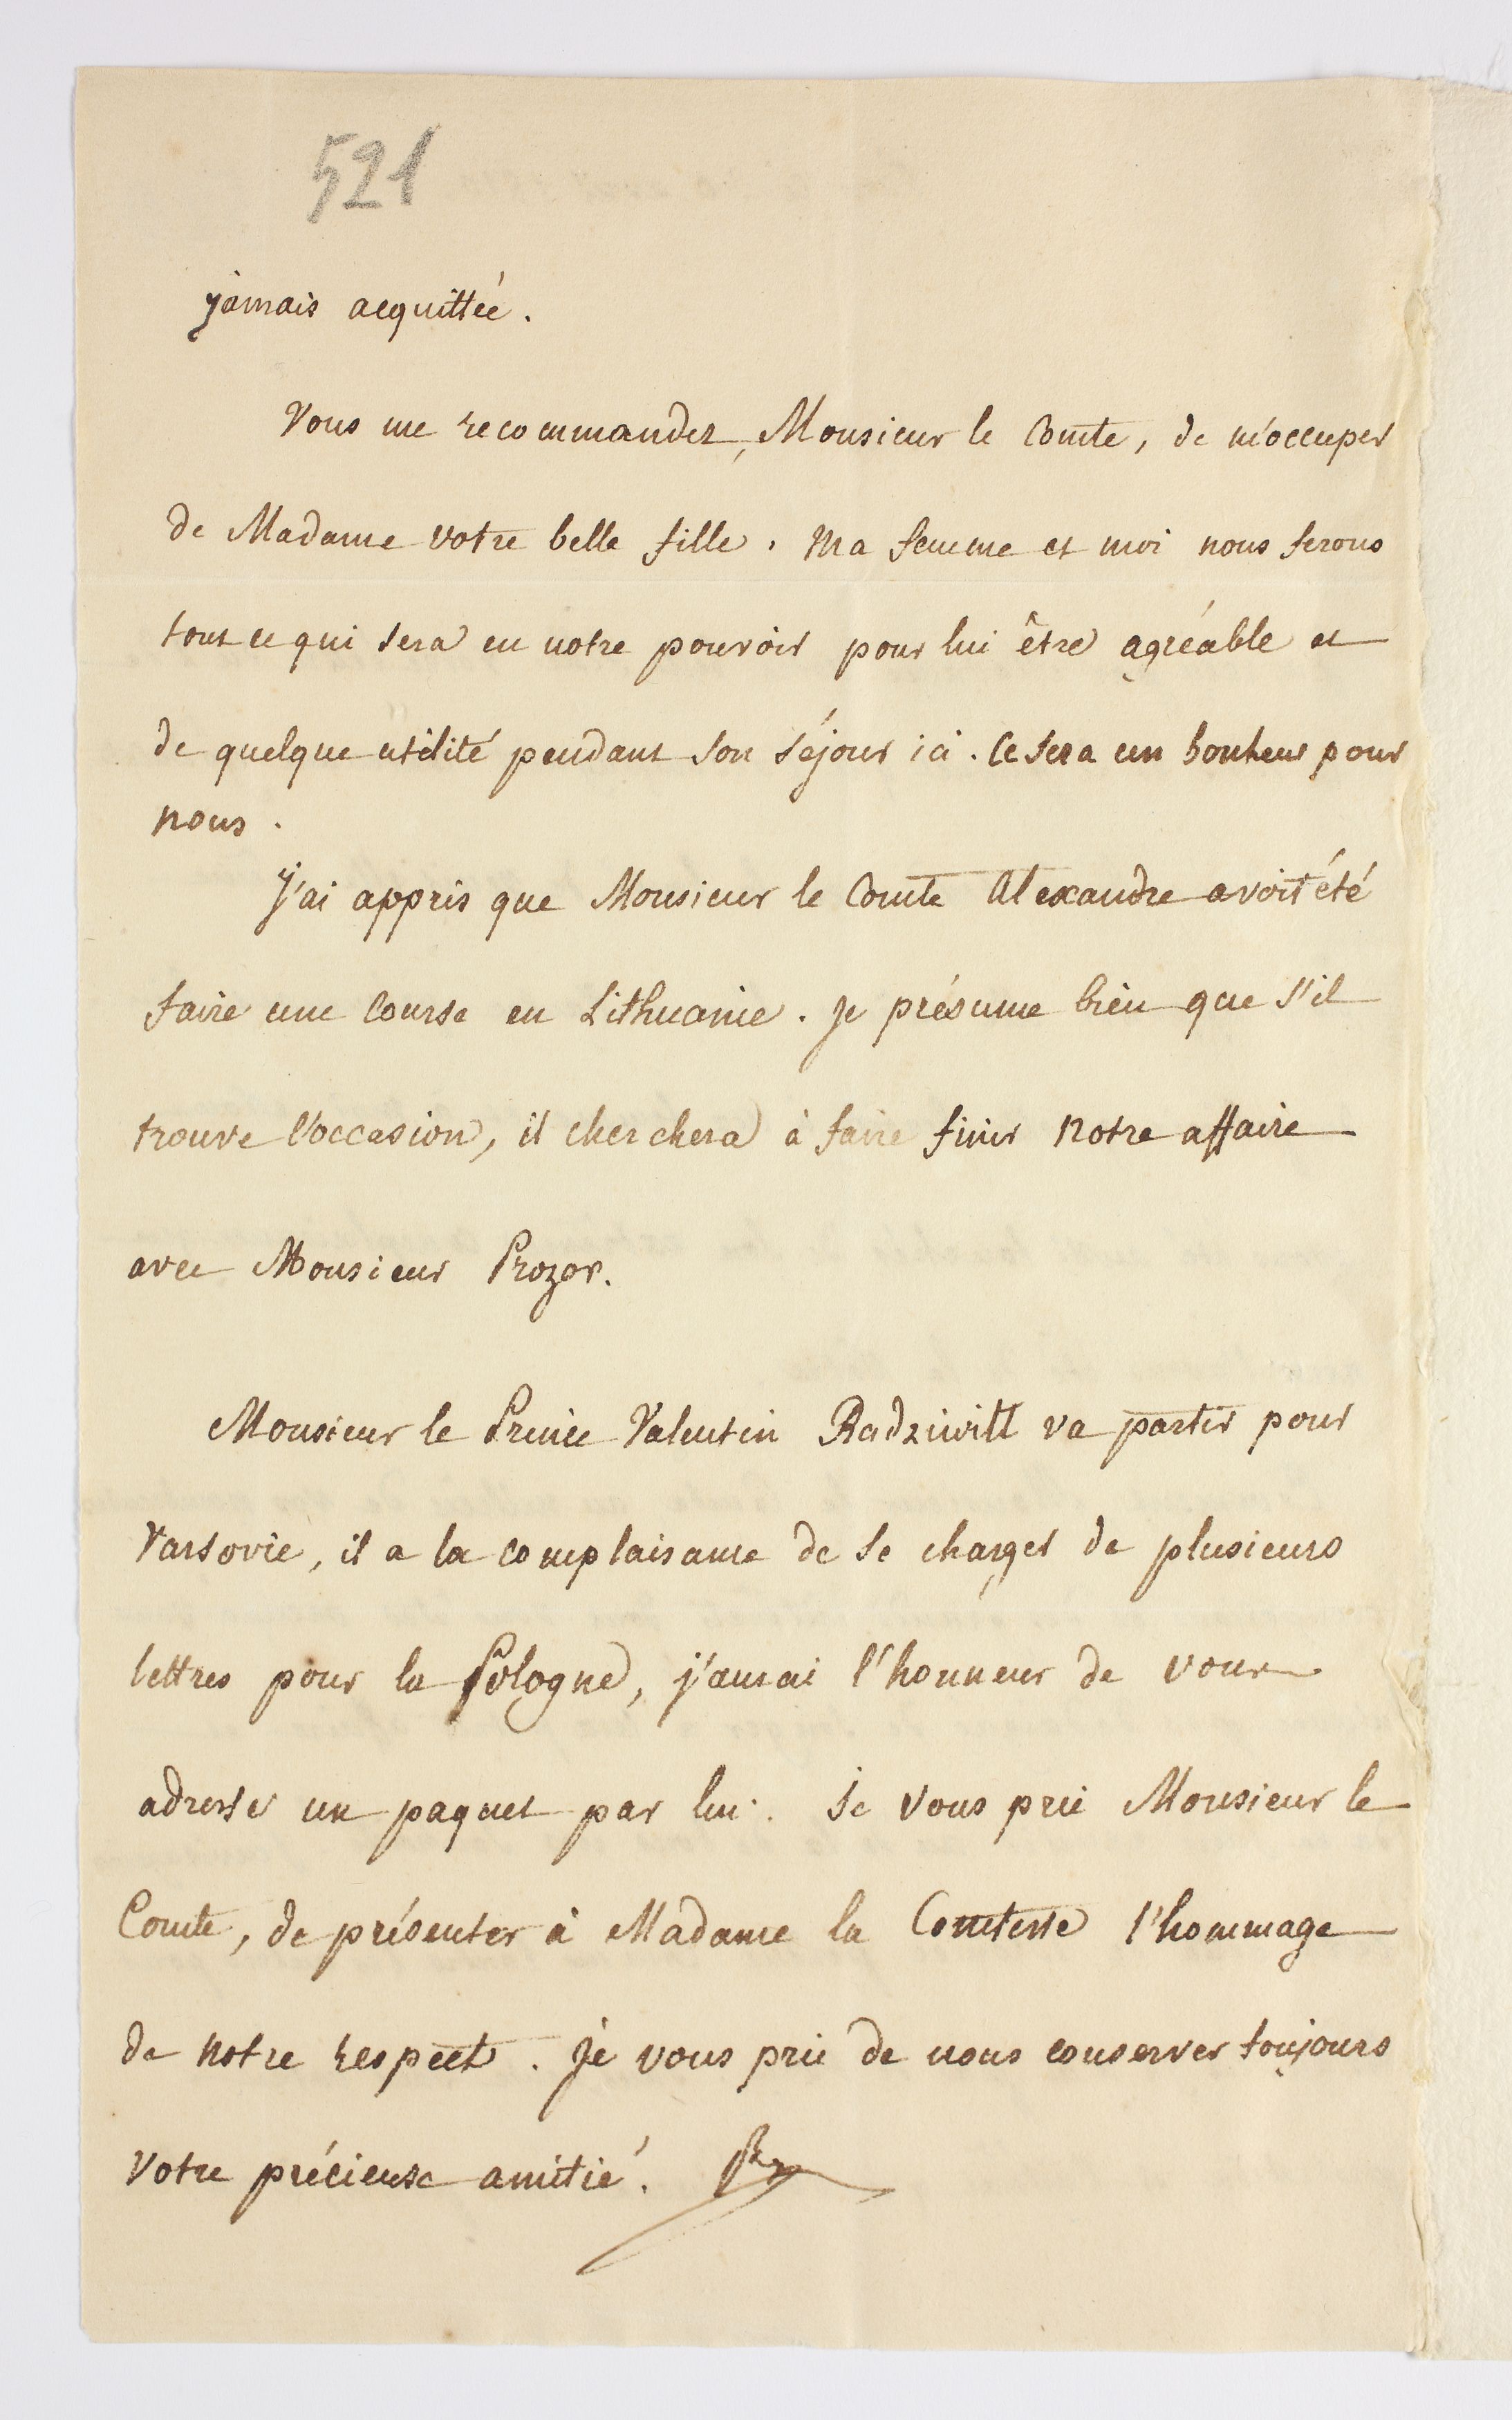 521
jamais acquittée.
Vous me recommandez, Monsieur le Comte, de m'occuper
de Madame votre belle fille. Ma femme et moi nous ferons
tout ce qui sera en notre pouvoir pour lui être agréable et
de quelque utilité pendant son séjour ici. Ce sera un bonheur pour
nous.
J'ai appris que Monsieur le Comte Alexandre avoit été
faire une course en Lithuanie. Je présume bien que s'il
trouve l'occasion, il cherchera à faire finir notre affaire
avec Monsieur Prozor.
Monsieur le Prince Valentin Radziwill va partir pour
Varsovie, il a la complaisance de se charger de plusieurs
lettres pour la Pologne, j'aurai l'honneur de vous
adresser un paquet par lui. Je vous prie Monsieur le
Comte, de présenter à Madame la Comtesse l'hommage
de notre respect. Je vous prie de nous conserver toujours
votre précieuse amitié.